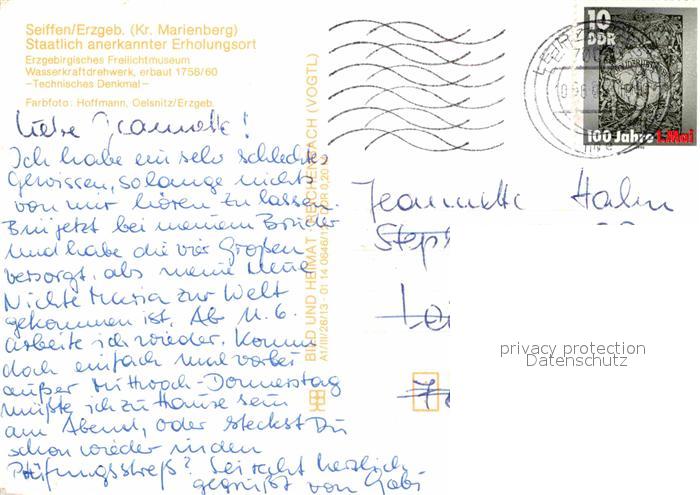 Seiffen/Erzgeb. (Kr. Marienberg)
Staatlich anerkannter Erholungsort
Erzgebirgisches Freilichtmuseum
Wasserkraftdrehwerk, erbaut 1758/60
—Technisches Denkmal—
Farbfoto: Hoffmann, Oelsnitz/Erzgeb.
Liebe Jeannette!
Ich habe ein sehr schlechtes
Gewissen, so lange nichts
von mir hören zu lassen.
Bin jetzt bei meinem Bruder
und habe die vier Großen
versorgt, als meine neue
Nichte Maria zur Welt
gekommen ist. Ab 11.6.
arbeite ich wieder. Komm
doch einfach mal vorbei
außer Mittwoch-Donnerstag
müßte ich zu Hause sein
am Abend, oder steckst Du
schon wieder in den
Prüfungsstreß? Sei recht herzlich
gegrüßt von Gabi
BILD UND HEIMAT REICHENBACH (VOGTL)
A1/III/26/13 01 14 0646/1
10
DDR
100 Jahre 1. Mai
Jeannette Hahn
Step
Lei
privacy protection
Datenschutz